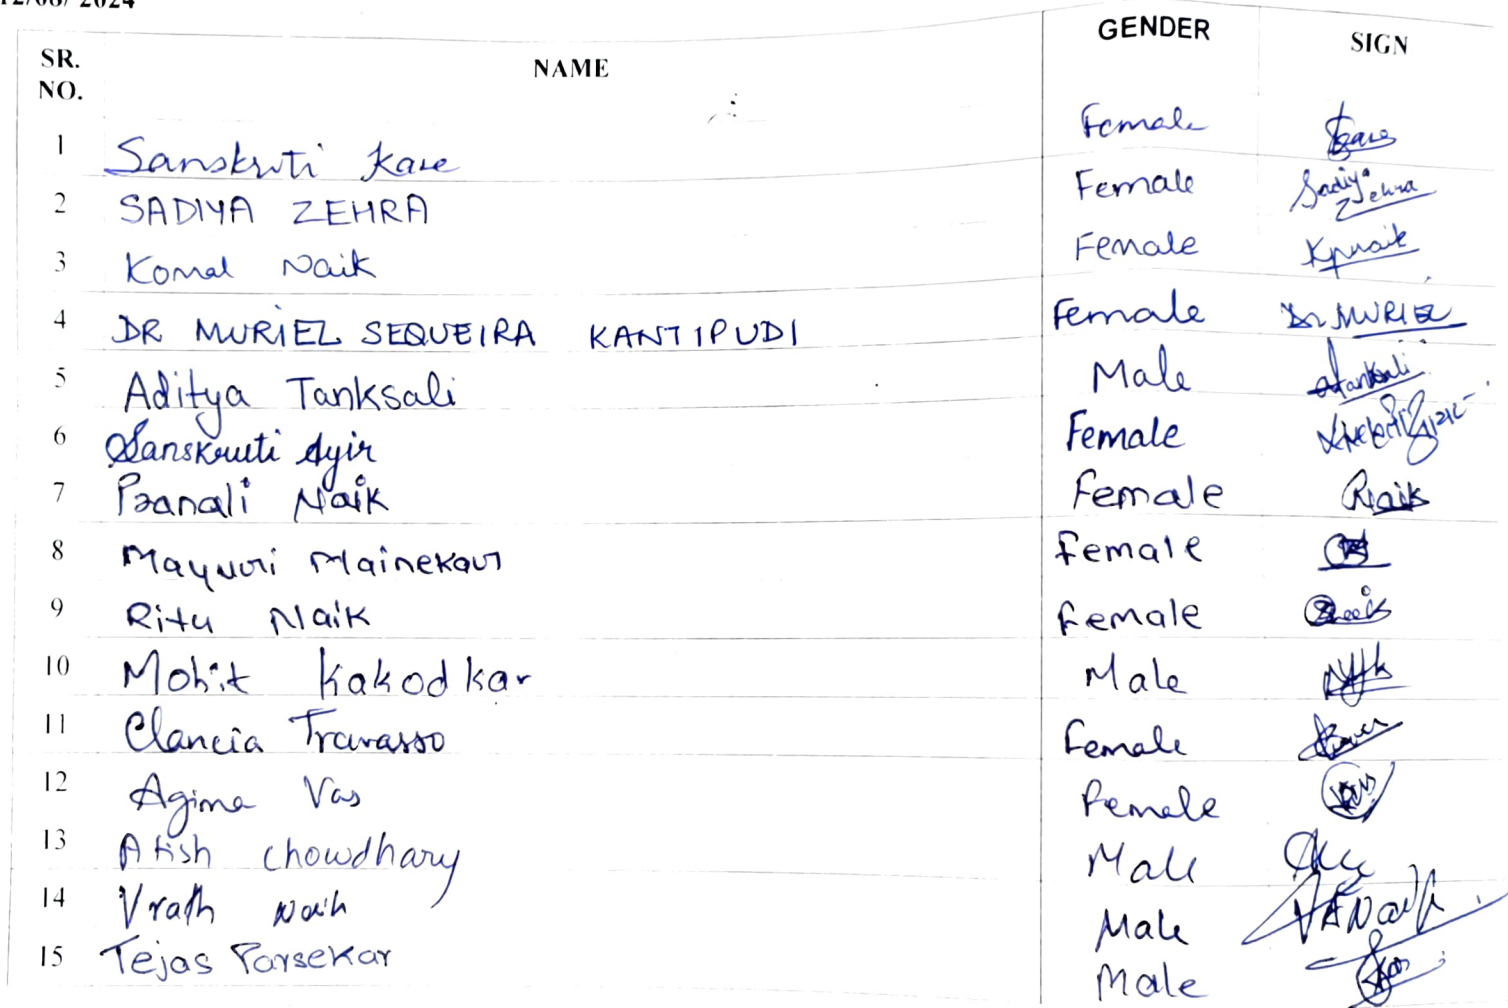 12/08/2024
SR. NO. NAME GENDER SIGN
1 Sanskruti Kare Female Kare
2 SADIYA ZEHRA Female Sadiya Zehra
3 Komal Naik Female Kpnaik
4 DR MURIEL SEQUEIRA KANTIPUDI Female Dr MURIEL
5 Aditya Tanksali Male Atanksali
6 Sanskruti Ayir Female
7 Pranali Naik Female PNaik
8 Mayuuri Mainekaur Female
9 Ritu Naik Female
10 Mohit Kakodkar Male
11 Clancia Travasso Female
12 Agima Vas Female Vas
13 Atish Chowdhary Male
14 Vrath Naik Male
15 Tejas Parsekar Male